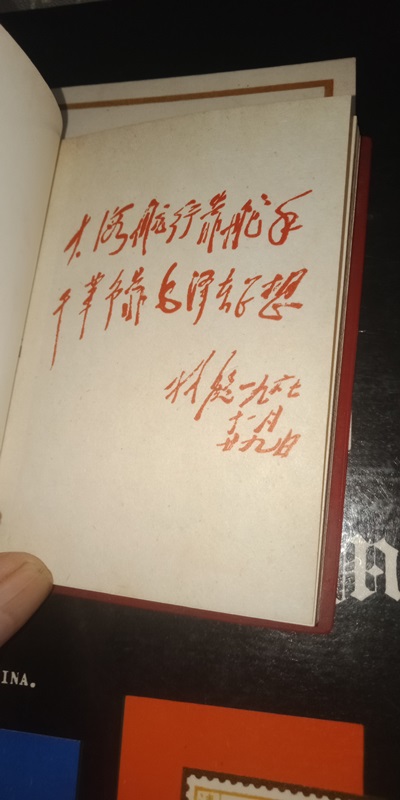 大海航行靠舵手
干革命靠毛泽东思想
林彪 一九六七
十一月
廿九日
INA.